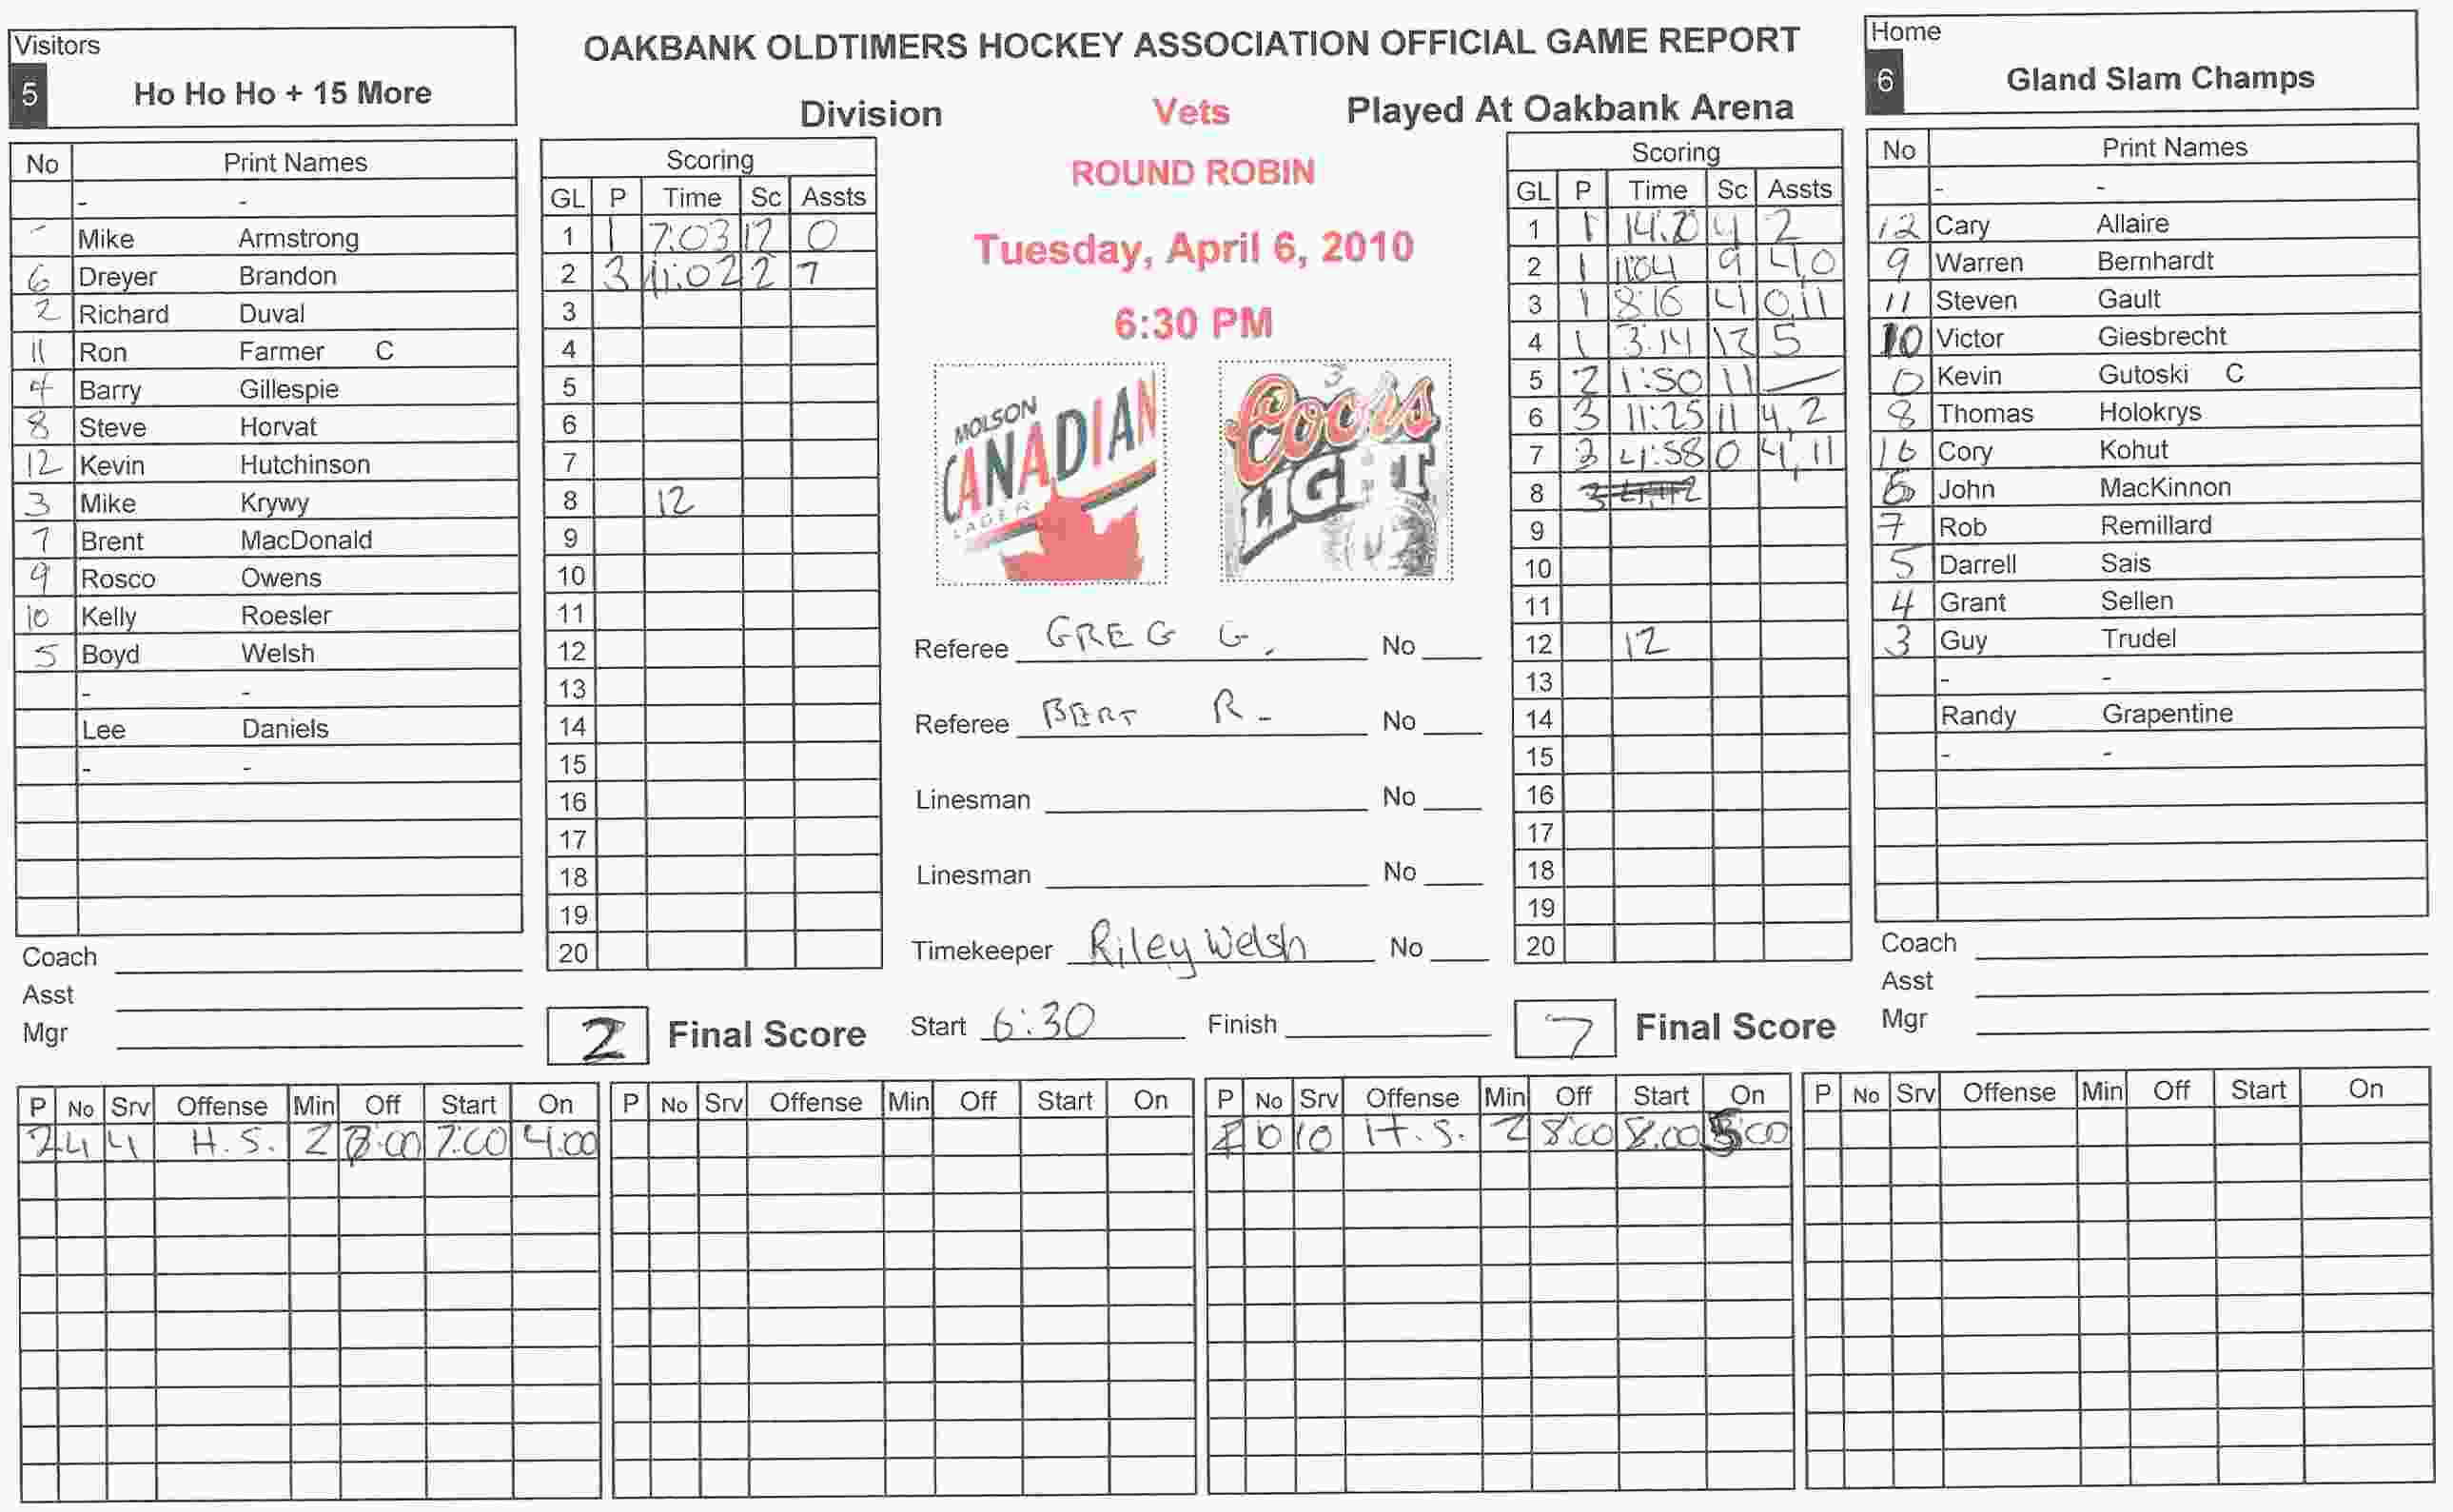 Visitors
5 Ho Ho Ho + 15 More
OAKBANK OLDTIMERS HOCKEY ASSOCIATION OFFICIAL GAME REPORT
Division Vets Played At Oakbank Arena
ROUND ROBIN
Tuesday, April 6, 2010
6:30 PM
Home
6 Gland Slam Champs
No Print Names
- -
- Mike Armstrong
6 Dreyer Brandon
2 Richard Duval
11 Ron Farmer C
4 Barry Gillespie
8 Steve Horvat
12 Kevin Hutchinson
3 Mike Krywy
7 Brent MacDonald
9 Rosco Owens
10 Kelly Roesler
5 Boyd Welsh
- -
Lee Daniels
- -
Coach
Asst
Mgr
Scoring
GL P Time Sc Assts
1 1 7:03 12 0
2 3 11:02 2 7
3
4
5
6
7
8 12
9
10
11
12
13
14
15
16
17
18
19
20
2 Final Score
MOLSON
CANADIAN
LAGER
Coors
LIGHT
Referee GREG G. No
Referee BERT R- No
Linesman No
Linesman No
Timekeeper Riley Welsh No
Start 6:30 Finish
Scoring
GL P Time Sc Assts
1 1 4 2
2 1 11:04 9 4,0
3 1 8:16 4 0,11
4 1 3:14 12 5
5 2 1:50 11 —
6 3 11:25 11 4,2
7 3 4:58 0 4,11
8
9
10
11
12 12
13
14
15
16
17
18
19
20
7 Final Score
No Print Names
- -
12 Cary Allaire
9 Warren Bernhardt
11 Steven Gault
10 Victor Giesbrecht
0 Kevin Gutoski C
8 Thomas Holokrys
16 Cory Kohut
John MacKinnon
7 Rob Remillard
5 Darrell Sais
4 Grant Sellen
3 Guy Trudel
- -
Randy Grapentine
- -
Coach
Asst
Mgr
P No Srv Offense Min Off Start On
2 4 4 H.S. 2 7:00 4:00
P No Srv Offense Min Off Start On
P No Srv Offense Min Off Start On
10 10 H.S. 2 8:00 8:00
P No Srv Offense Min Off Start On